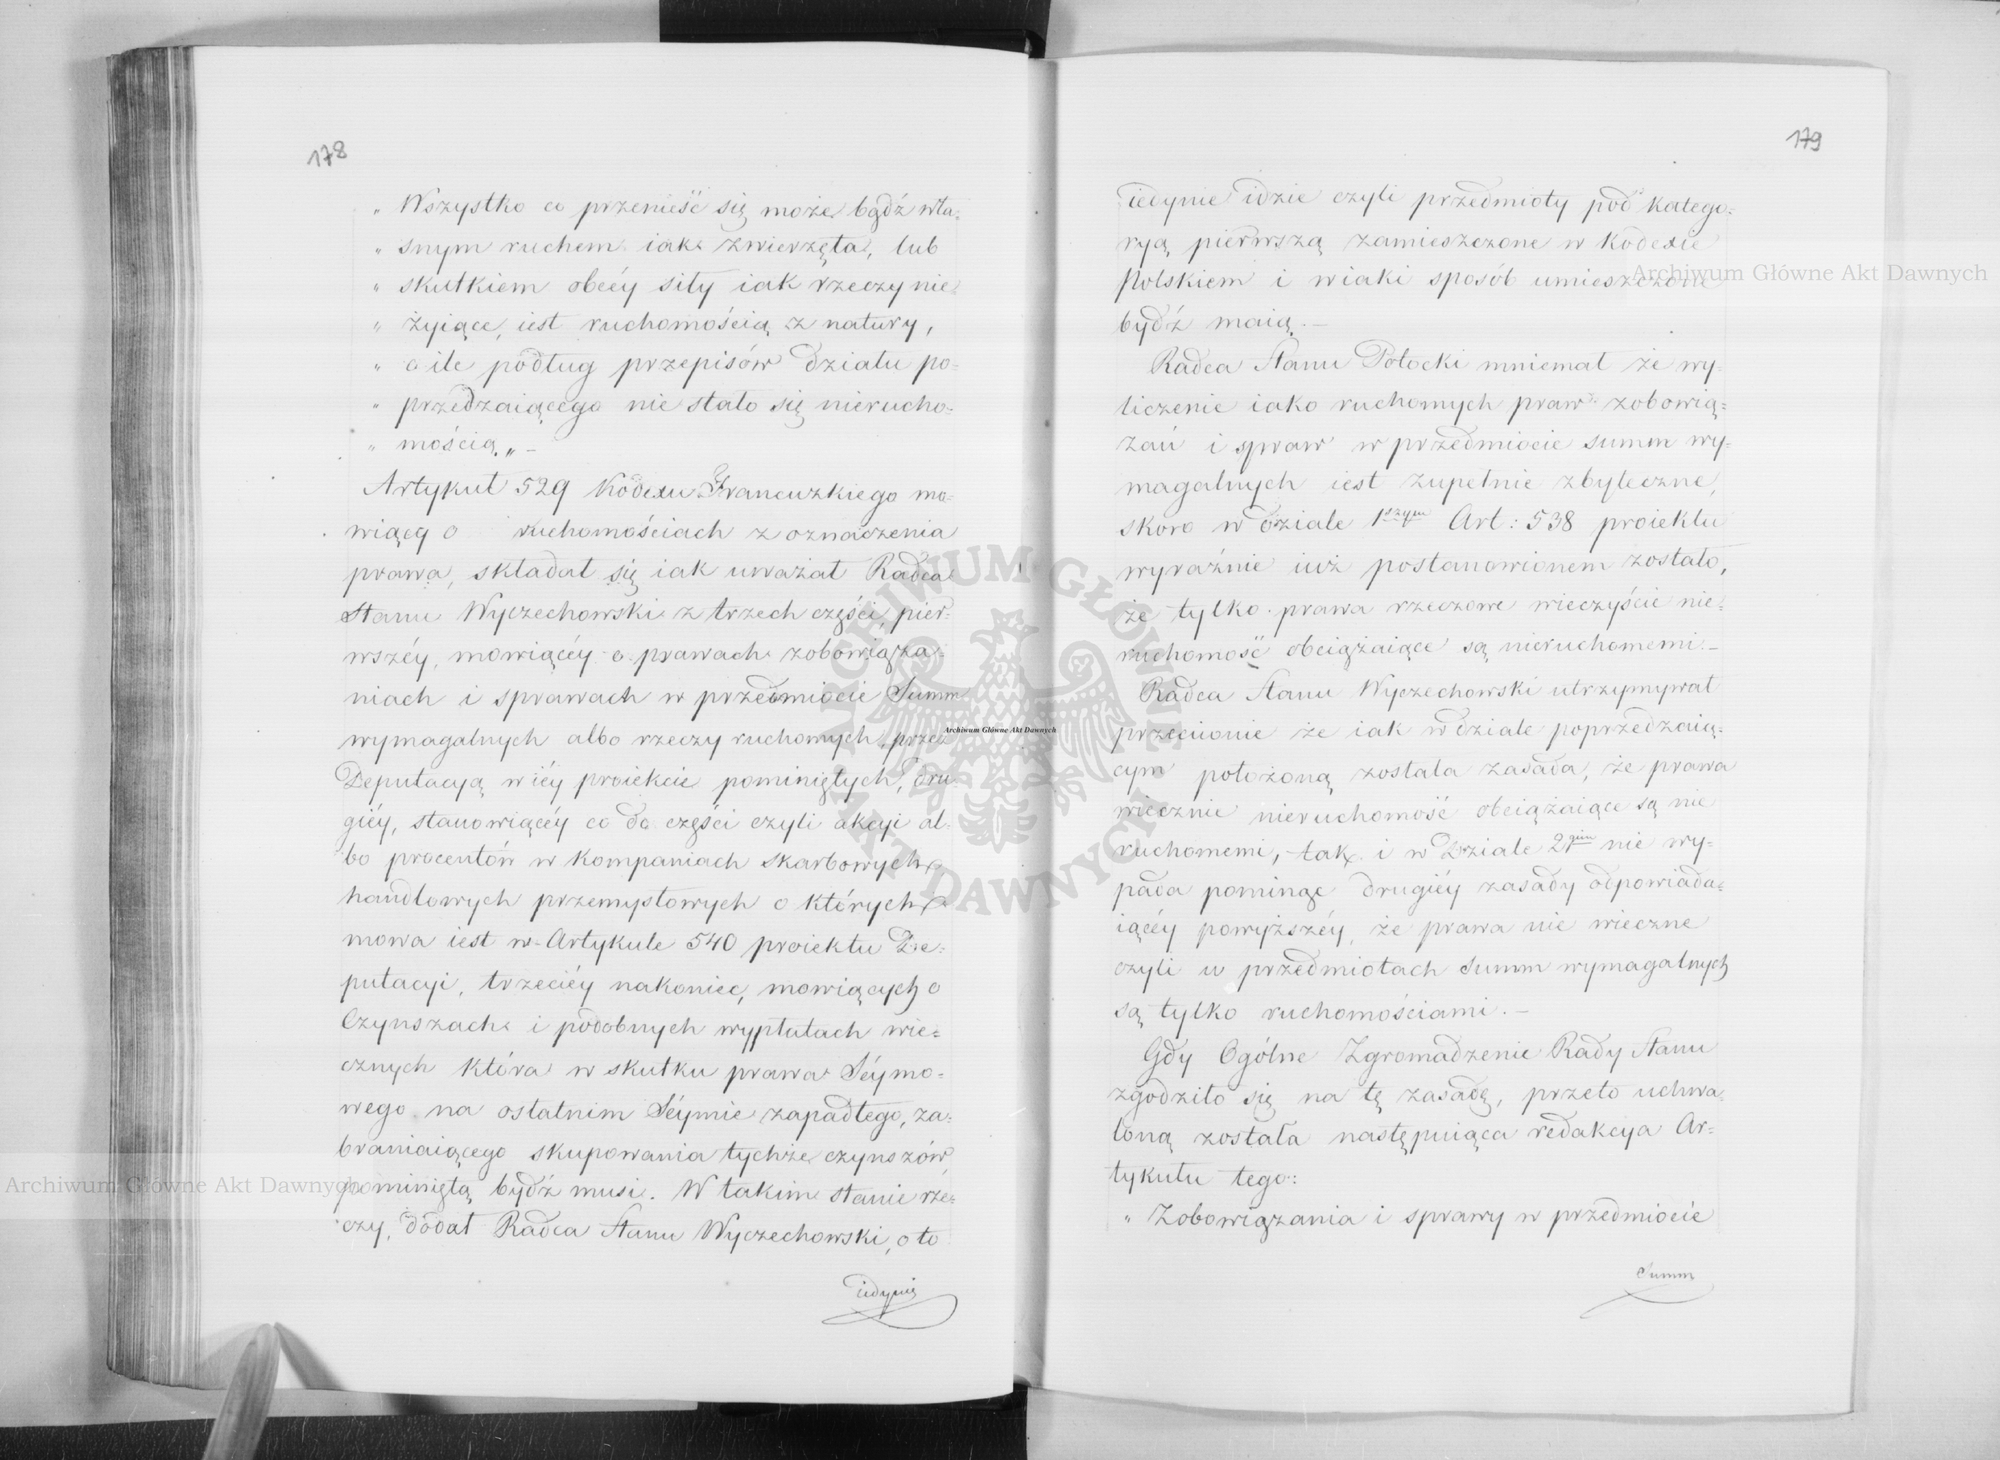 178
„ Wszystko co przenieść się może bądź wła-
„ snym ruchem iak zwierzęta, lub
„ skutkiem obcéy siły iak rzeczy nie-
„ żyiące, iest ruchomością z natury,
„ o ile podług przepisów działu po-
„ przedzaiącego nie stało się nierucho-
„ mością. „ –
Artykuł 529 Kodexu Francuzkiego mo-
wiący o ruchomościach z oznaczenia
prawa, składał się iak uważał Radca
Stanu Wyczechowski z trzech części, pier-
wszéy, mowiącéy o prawach zobowiąza-
niach i sprawach w przedmiocie Summ
wymagalnych albo rzeczy ruchomych, przez
Deputacyą w iéy proiekcie pominiętych, dru-
giéy, stanowiącéy co do części czyli akcyi al-
bo procentów w Kompaniach skarbowych
handlowych przemysłowych o których
mowa iest w Artykule 540 proiektu De-
putacyi, trzeciéy nakoniec, mowiących o
Czynszach i podobnych wypłatach wie-
cznych która w skutku prawa Séymo-
wego na ostatnim Séymie zapadłego, za-
braniaiącego skupowania tychże czynszów
pominiętą bydź musi. W takim stanie rze-
czy, dodał Radca Stanu Wyczechowski, o to
iedynie
179
iedynie idzie czyli przedmioty pod katego-
ryą pierwszą zamieszczone w Kodexie
Polskiem i w iaki sposób umieszczone
bydź maią. –
Radca Stanu Potocki mniemał że wy-
liczenie iako ruchomych praw zobowią-
zań i spraw w przedmiocie summ wy-
magalnych iest zupełnie zbyteczne,
skoro w dziale 1szym Art: 538 proiektu
wyraźnie iuż postanowionem zostało,
że tylko prawa rzeczowe wieczyście nie-
ruchomość obciążaiące są nieruchomemi. –
Radca Stanu Wyczechowski utrzymywał
przeciwnie że iak w dziale poprzedzaią-
cym położoną została zasada, że prawa
wiecznie nieruchomość obciążaiące są nie
ruchomemi, tak i w Dziale 2gim nie wy-
pada pominąć drugiéy zasady odpowiada-
iącéy powyższéy, że prawa nie wieczne
czyli w przedmiotach summ wymagalnych
są tylko ruchomościami. –
Gdy Ogólne Zgromadzenie Rady Stanu
zgodziło się na tę zasadę, przeto uchwa-
loną została następuiąca redakcya Ar-
tykułu tego:
„ Zobowiązania i sprawy w przedmiocie
Summ
Archiwum Główne Akt Dawnych
Archiwum Główne Akt Dawnych
Archiwum Główne Akt Dawnych
ARCHIWUM GŁÓWNE AKT DAWNYCH